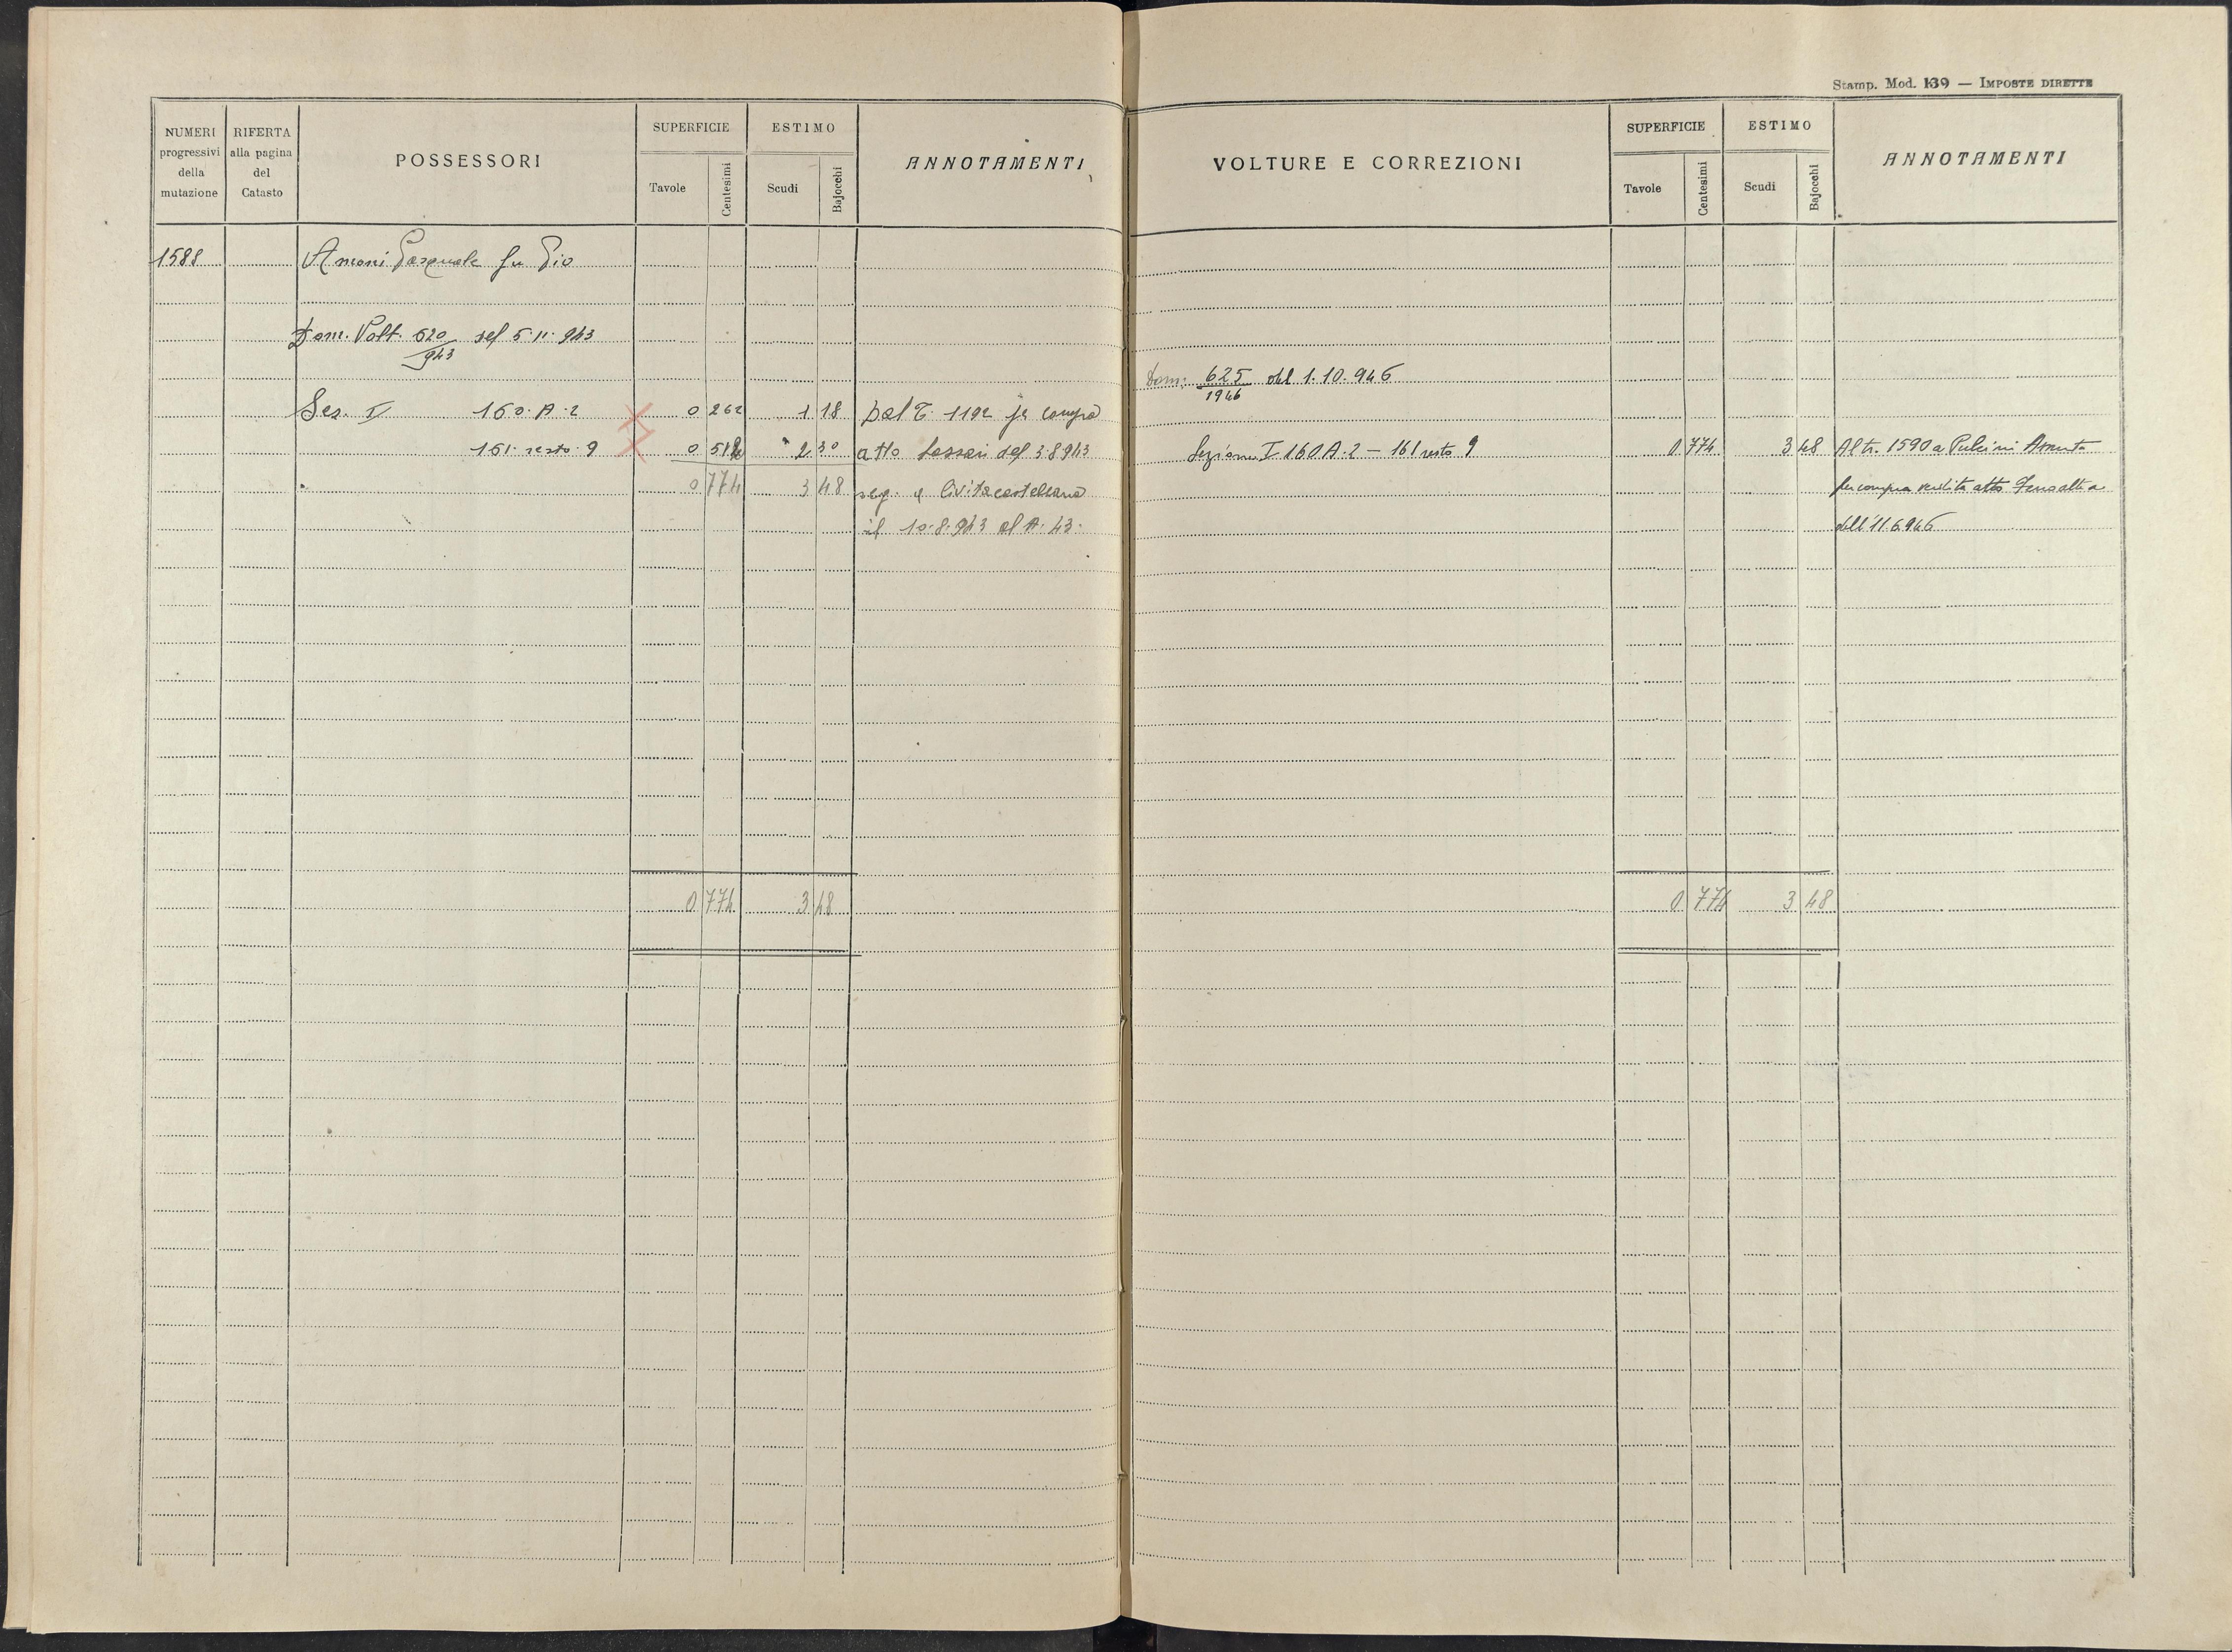 Stamp. Mod. 139 — IMPOSTE DIRETTE
NUMERI progressivi della mutazione
RIFERTA alla pagina del Catasto
POSSESSORI
SUPERFICIE
Tavole Centesimi
ESTIMO
Scudi Bajocchi
ANNOTAMENTI
1588 Amoni Pasquale fu Pio
Dom. Volt. 620/943 del 5.11.943
Sez. I 160.A.2 0 262 1 18 Dal T. 1192 per compra
161 resto 9 0 512 2 30 atto del 3.8.943
0 774 3 48 reg. a Civitacastellana
il 10.8.943 al N. 43.
0 774 3 48
VOLTURE E CORREZIONI
SUPERFICIE
Tavole Centesimi
ESTIMO
Scudi Bajocchi
ANNOTAMENTI
Dom: 625/1946 del 1.10.946
Sezione I 160 A.2 — 161 resto 9 0 774 3 48 Al tr. 1590 a Pulcini
per compra vendita atto
dell'11.6.946
0 774 3 48